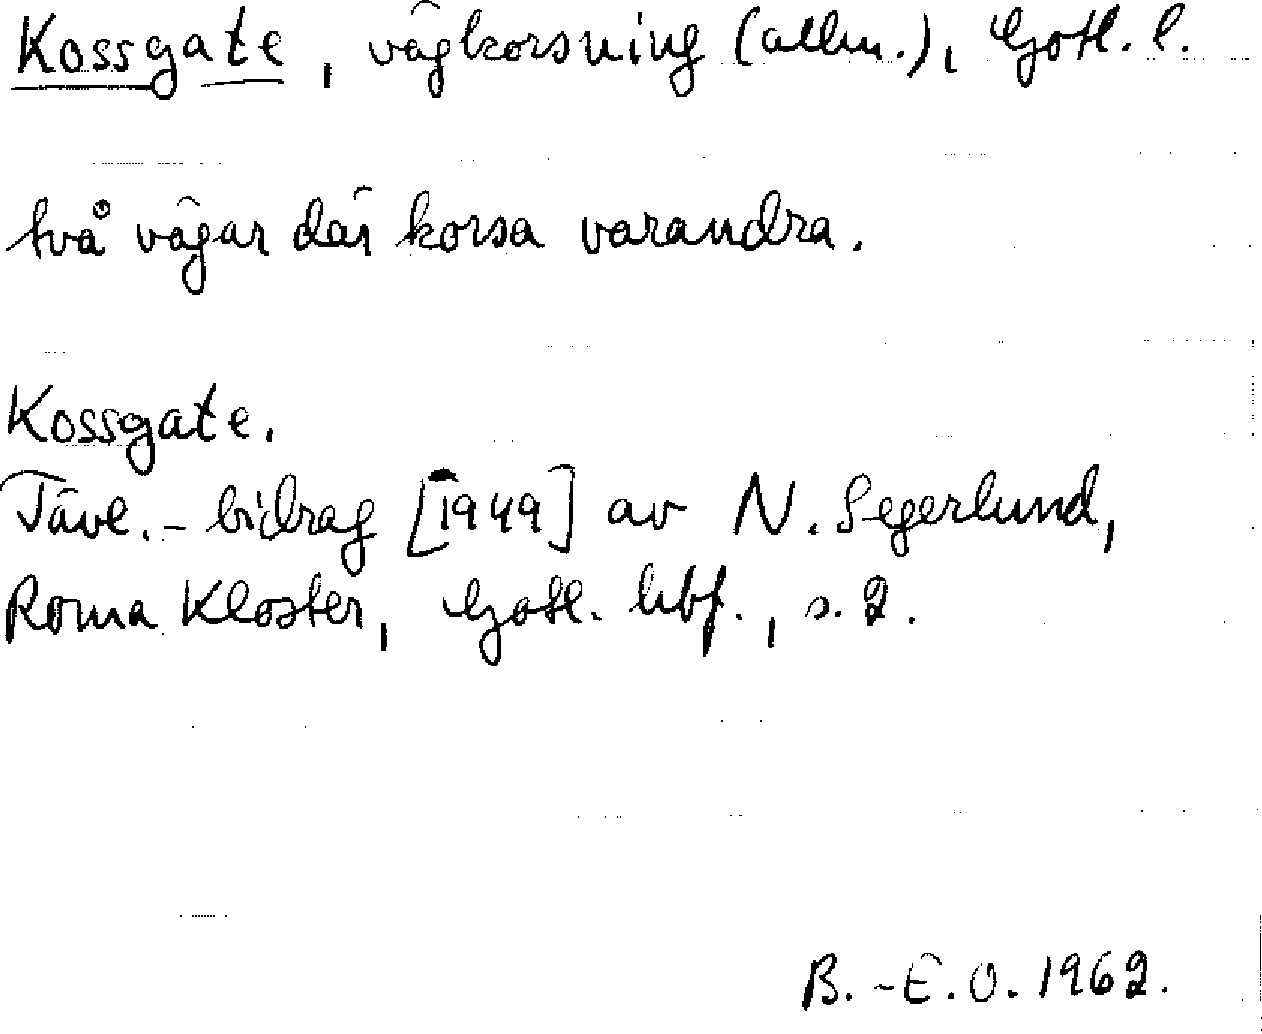 Kossgate, vägkorsning (allm.), Gotl. l.
två vägar där korsa varandra.
Kossgate.
Tävl.-bidrag [1949] av N. Segerlund,
Roma Kloster, Gotl. hbf., s. 2.
B.-E.O. 1962.